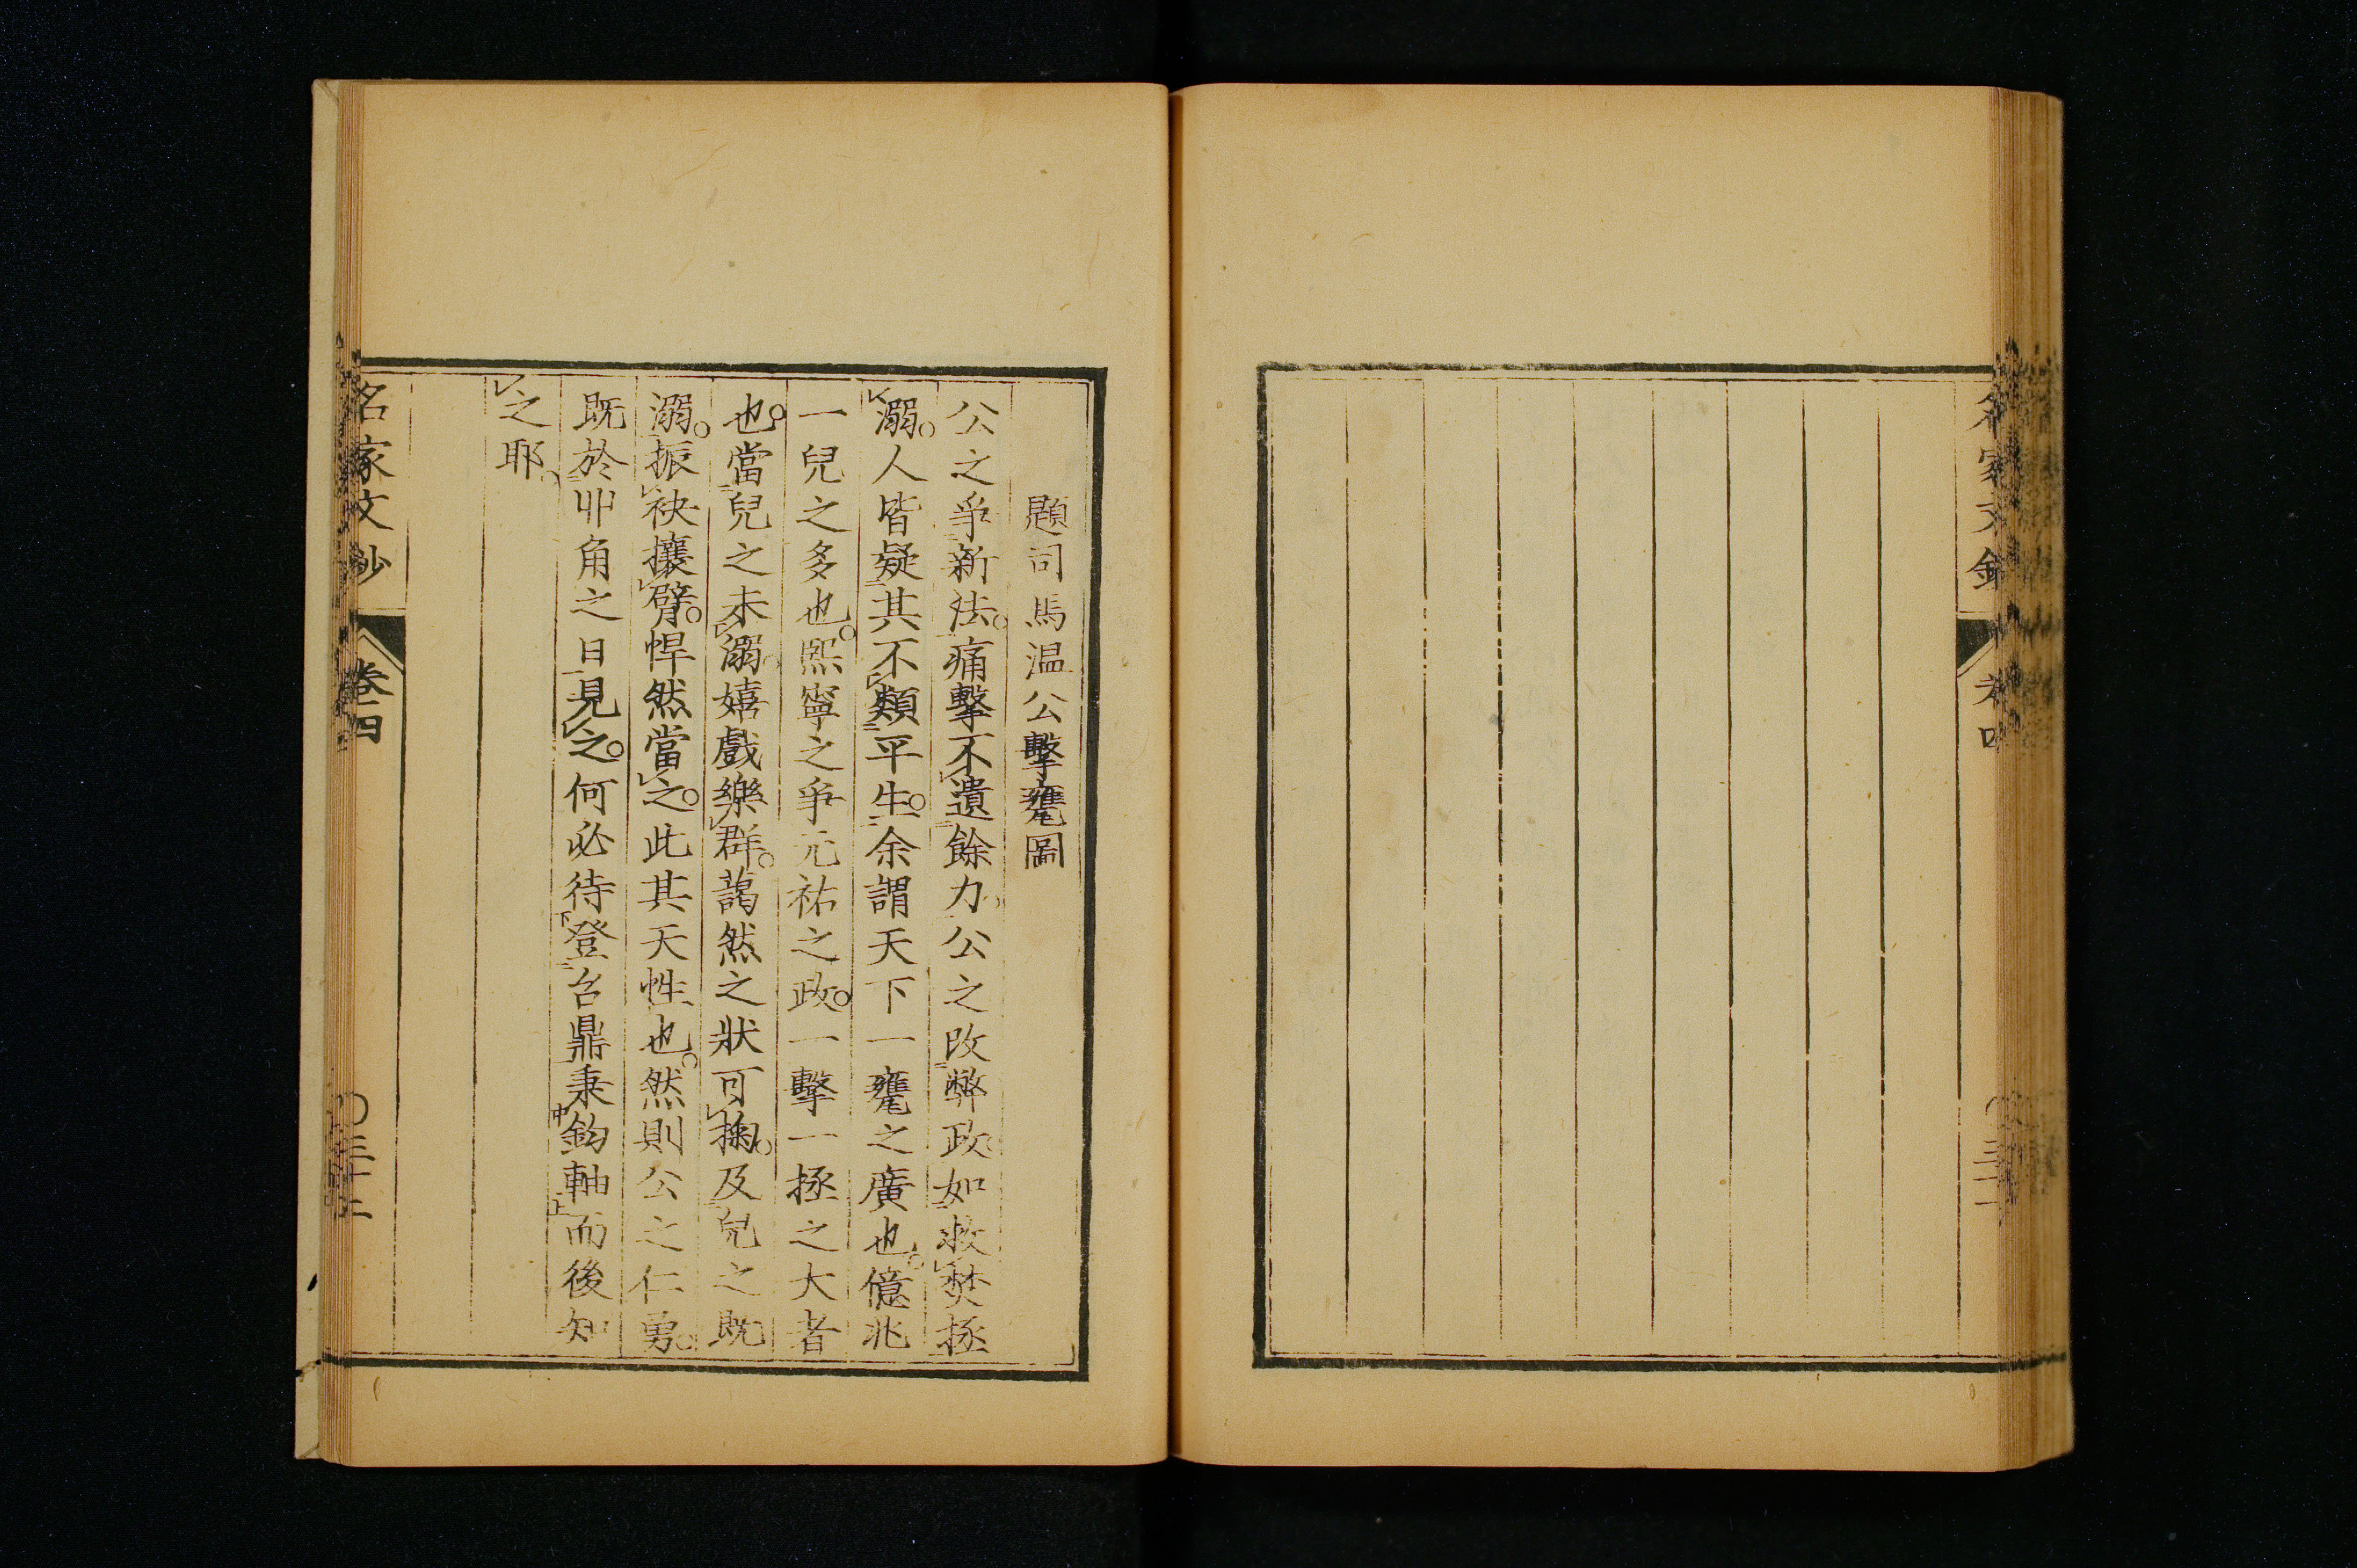 題司馬温公擊甕圖
公之爭新法。痛擊不遺餘力。公之改弊政。如救焚拯
溺。人皆疑其不類平生。余謂天下一甕之廣也。億兆
一兒之多也。熙寧之爭元祐之政。一擊一拯之大者
也。當兒之未溺。嬉戲樂群。藹然之狀可掬。及兒之既
溺。振袂攘臂。悍然當之。此其天性也。然則公之仁勇。
既於丱角之日見之。何必待登台鼎秉鈞軸而後知
之耶。
名家文鈔 卷四